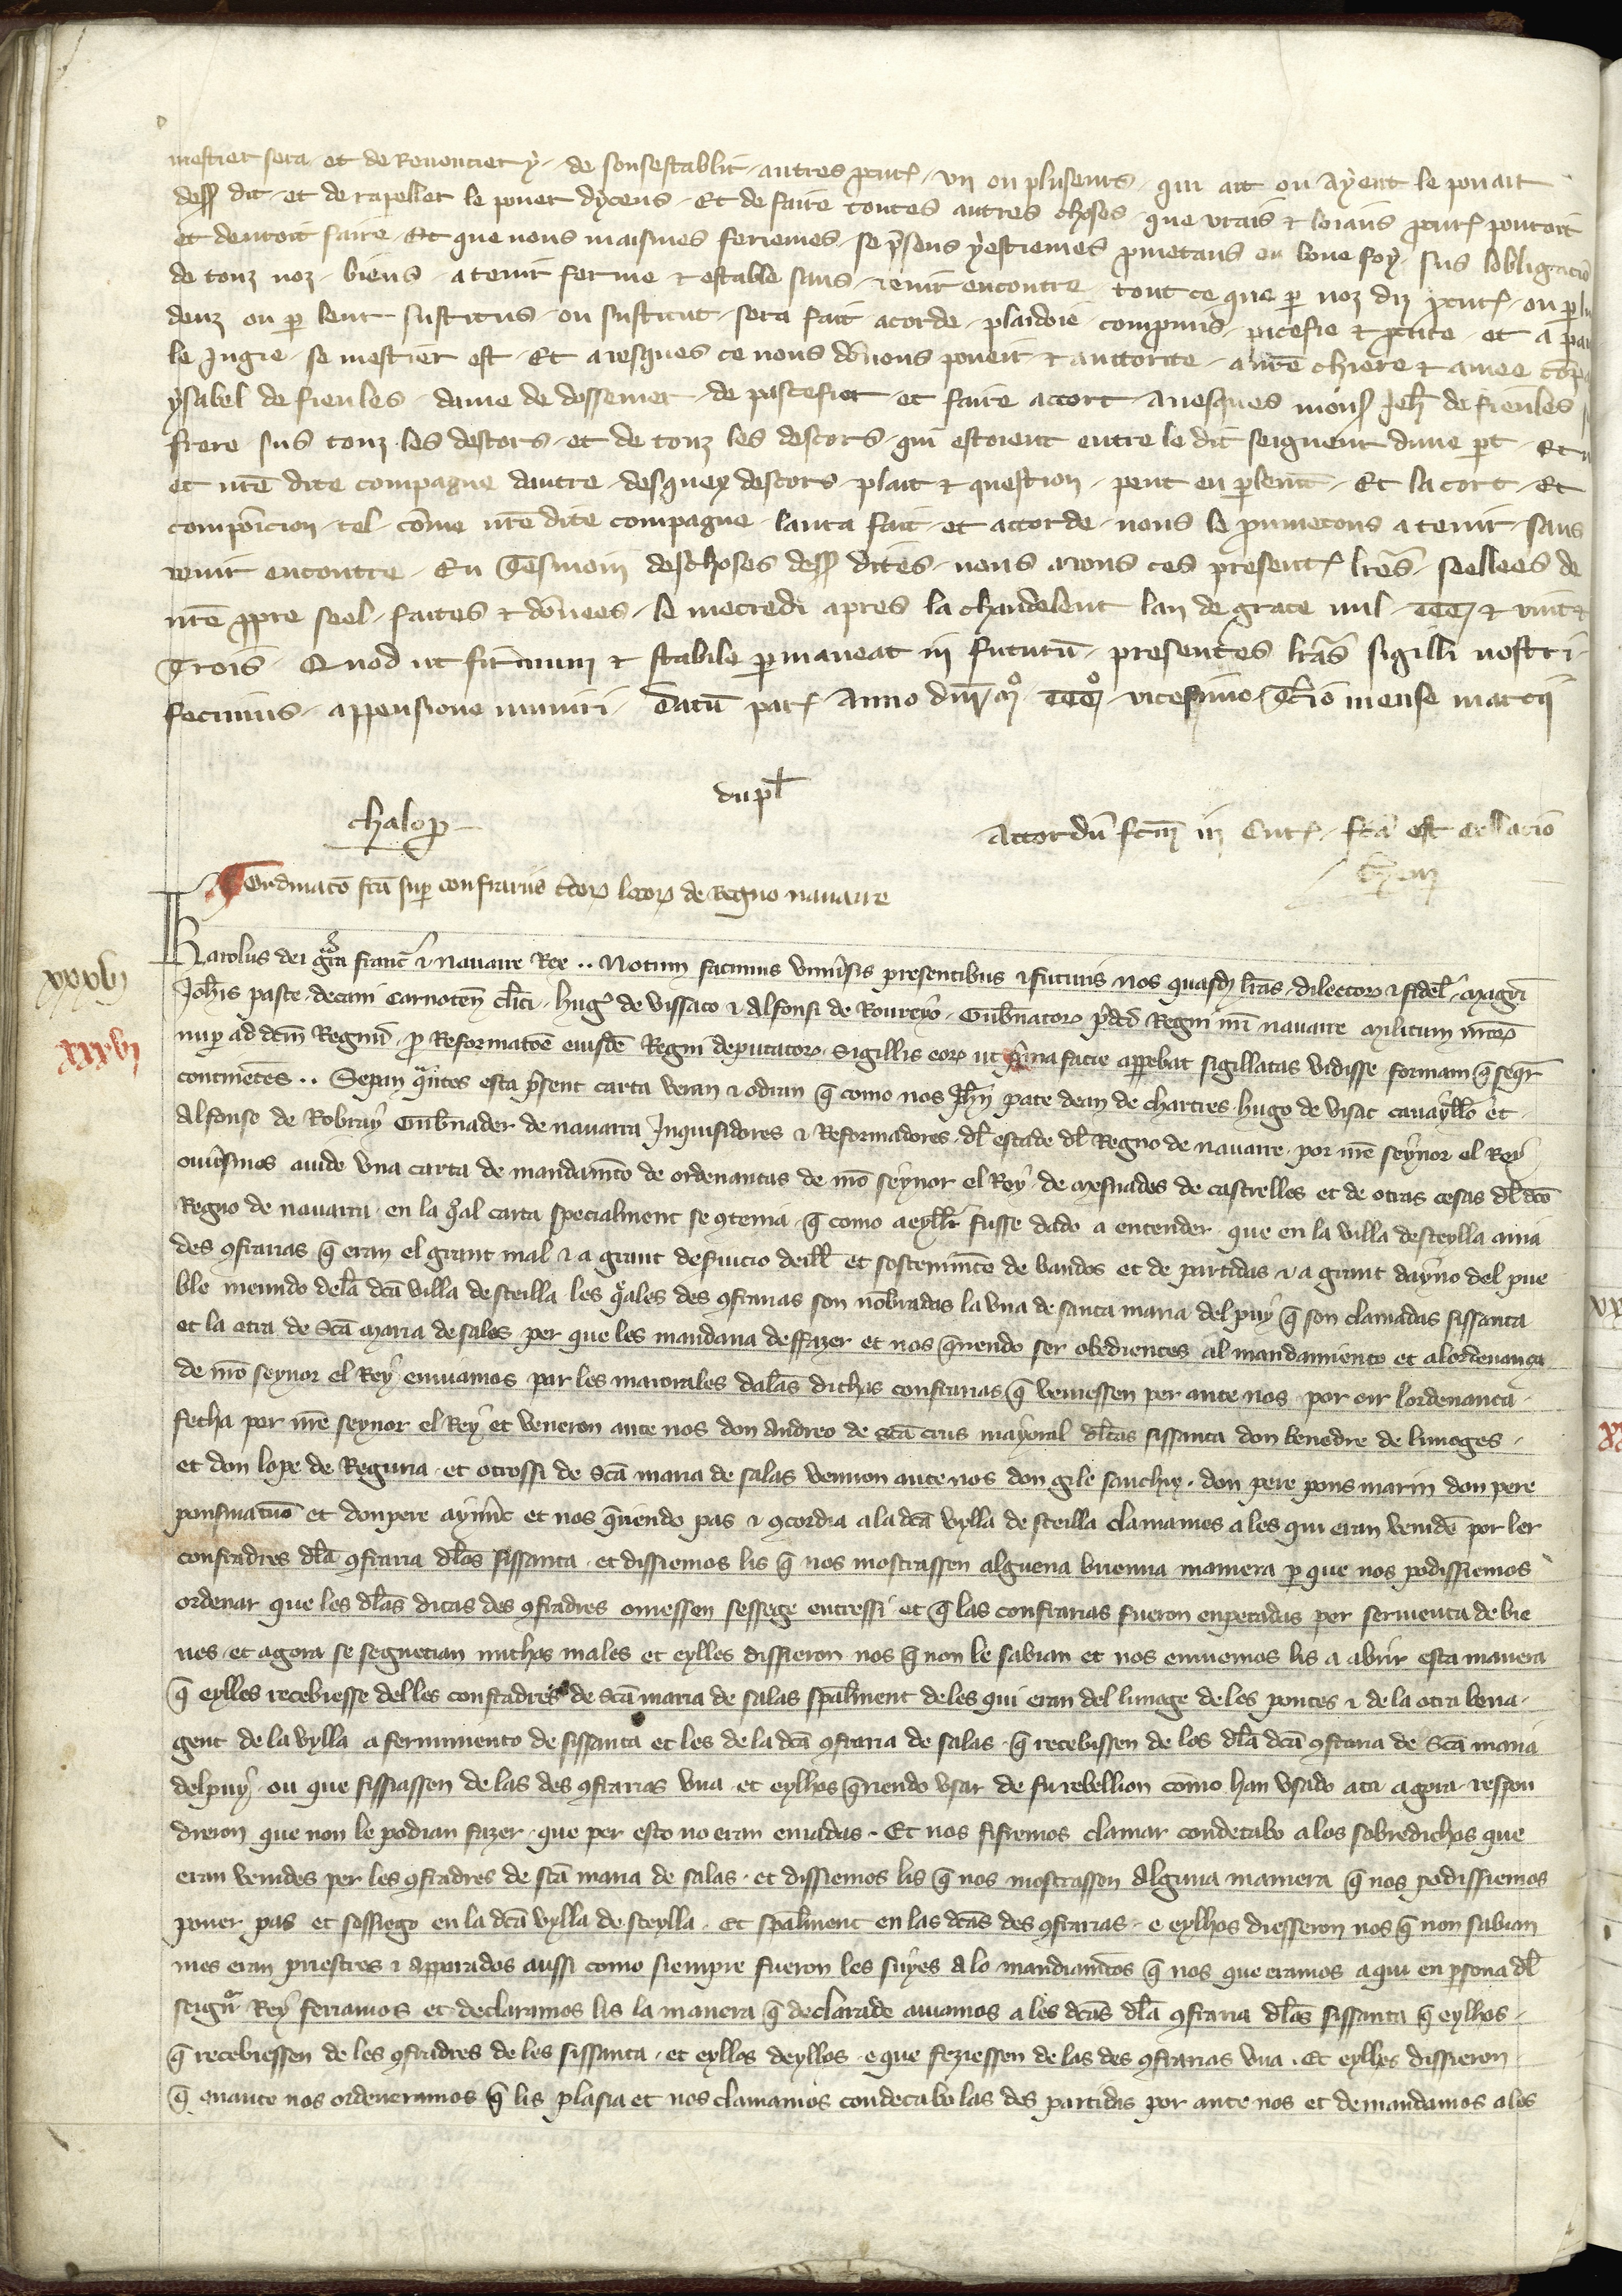 mestier sera et de Renoncier y de sousestablir autres procur̃ un ou pluseurs qui ait ou ayent le pouair
dess̃ dit et de rapeller le pouer dyceus Et de faire toutes autres choses que vrais ⁊ loiaus procur̃ pourroit
et deuroit faire Et que nous maismes feriemes se p̃sens yestiemes prometans en bone foy sus lobligaciõ
de touz noz biens a tenir ferme ⁊ estable sans venir encontre tout ce que par noz diz procur̃ ou par
deuz ou par leur sustitus ou sustitut sera fait acorde plaidoie compromis pacefie ⁊ et a
le Jugie se mestier est Et auesques ce nous dõnons poueir ⁊ auttorite a nr̃e chiere ⁊ amee
ysabel de fieules dame de de pascefier et faire accort auesques mons̃ Jeh̃ de fieules
frere sus touz les descors et de touz les descors qui estoient entre le dit seigneur dune part Et
et nr̃e dite compagne dautre desquex descors plait ⁊ question pent en parlemt̃ Et lacort Et
composicion tel cõme nr̃e dite compagne laura fait et accorde nous le prometons a tenir sans
venir encontre En Tesmoin des choses dess̃ dites nous auons ces present̃ lr̃es seellees de
nr̃e propre seel faites ⁊ dõnees le mecredi apres la chandeleur lan de grace mil CCC ⁊ vint ⁊
Trois Quod ut firmum ⁊ stabile permaneat in futurũ presentes lr̃as sigilli nostri
fecimus appensione muniri Datũ par̃ Anno dñi mº CCCº vicesimo tc̃io mense marcii
dupl̃
chalop
Accordũ fc̃m in Cur̃ fc̃a est collacio
Ordinatõ fc̃a super confrariis locorꝫ de Regno nauarre
Karolus dei gr̃a franc̃ ⁊ nauarre Rex .. Notum facimus vniu̾sis presentibus ⁊ futuris nos quasdꝫ lr̃as dilectorꝫ ⁊ fidel̃ magr̃i
Joh̃is paste decani Carnoten̄ cl̃ici hug̃ de vissaco ⁊ Alfonsi de Roureyo Gub̃natorꝫ Regni nr̃i nauarre militum nr̃orꝫ
nuper ad dc̃m Regnũ pro Reformatõe eiusdẽ Regni deputatorꝫ Sigillis eorꝫ ut prima facie apparebat sigillatas vidisse formam q̃ seqr̃
continẽtes .. Sepan quãtos esta p̃sent carta veran ⁊ odiran q̃ como nos Joh̃n pate dean de chartres hugo de visac cauayllo et
Alfonse de Robray Gub̃nader de nauarra Inquisidores ⁊ Reformadores dl̃ estade dl̃ Regno de nauarre por nr̃e seynor el Rey
ouiesmos auide vna carta de mandamt̃o de ordenancas de nr̃o seynor el Rey de mesnades de castrelles et de otras cosas dl̃ dc̃o
Regno de nauarra en la qual carta specialment se 9tenia q̃ como aeyllr̃ fusse dado a entender que en la villa desteylla auia
des 9frarias q̃ eran el grant mal ⁊ a grant deseruicio deill̃ et sostenimt̃o de bandos et de partidas ⁊ a grant dayno del pue
ble menudo dela dc̃a villa desteilla les quales des 9frarias son nõbradas la vna de santa maria del puy q̃ son clamadas sissanta
et la otra de Sc̃a maria de salas per que les mandaua deffazer et nos q̃riendo ser obedientes al mandamiento et alordenança
de nr̃o seynor el Rey enuiamos par les maiorales dalas dichas confrarias q̃ veniessen per ante nos por oir lordenanca
fecha por nr̃e seynor el Rey et veneron ante nos don Andreo de Sc̃a crus mayoral dl̃as sissanta don benedre de limoges
et don lope de Reguria et otrossi de Sc̃a maria de salas venuon ante nos don gile sanchiz don pere pons marin don pere
ponsmatuo et don pere aym̃ic et nos q̃riendo pas ⁊ 9cordia a la dc̃a vylla de steilla clamames a les qui eran venide por ler
confradres dl̃a 9fraria dl̃os sissanta et dissiemos lis q̃ nos mostrassen alguena buenna maniera per que nos podissiemos
ordenar que les dl̃as dicas des 9fradres ouiessen sessege entressi et q̃ las confrarias fueron enpecadas per seruenta de bie
nes et agora se seguecian muchos males et eylles dissieron nos q̃ non le sabian et nos enuiemos lis a abrir esta manera
q̃ eylles recebiesse delles confradres de Sc̃a maria de salas spal̃ment deles qui eran del linage de les ponces ⁊ de la otra bona
gent de la vylla a fermimiento de sissanta et les de la dc̃a 9fraria de salas q̃ recebissen de los dl̃a dc̃a 9fraria de Sc̃a maria
delpuy ou que fissiassen de las des 9frarias vna et eylhos q̃riendo vsar de su rebellion como han vsado ata agora respon
dieron que non le podian fazer que per esto no eran eniadas Et nos fifiemos clamar condecabo a los sobredichos que
eran venides per les 9fradres de sc̃a maria de salas et dissiemos lis q̃ nos mostrasson Alguna maniera q̃ nos podissiemos
poner pas et sossiego en la dc̃a vylla de steylla Et spal̃ment en las dc̃as des 9frarias e eylhos diesseron nos q̃ non sabian
mes eran priestres ⁊ apparados aussi como siempre fueron les suyes a lo mandiamt̃os q̃ nos que eramos aqui en persona dl̃
seignor Rey feriamos et declaramos lis la manera q̃ declarade auiamos a les dc̃as dl̃a 9fraria dl̃os sissanta q̃ eylhos
q̃ recebiessen de les 9fradres de les sissanta et eyllos deyllos e que feziessen de las des 9frarias vna Et eylhes dissieron
q̃ enante nos ordeneramos q̃ lis plasia et nos clamamos condecabo las des partidas por ante nos et demandamos a les
xxxvij
xxxvi